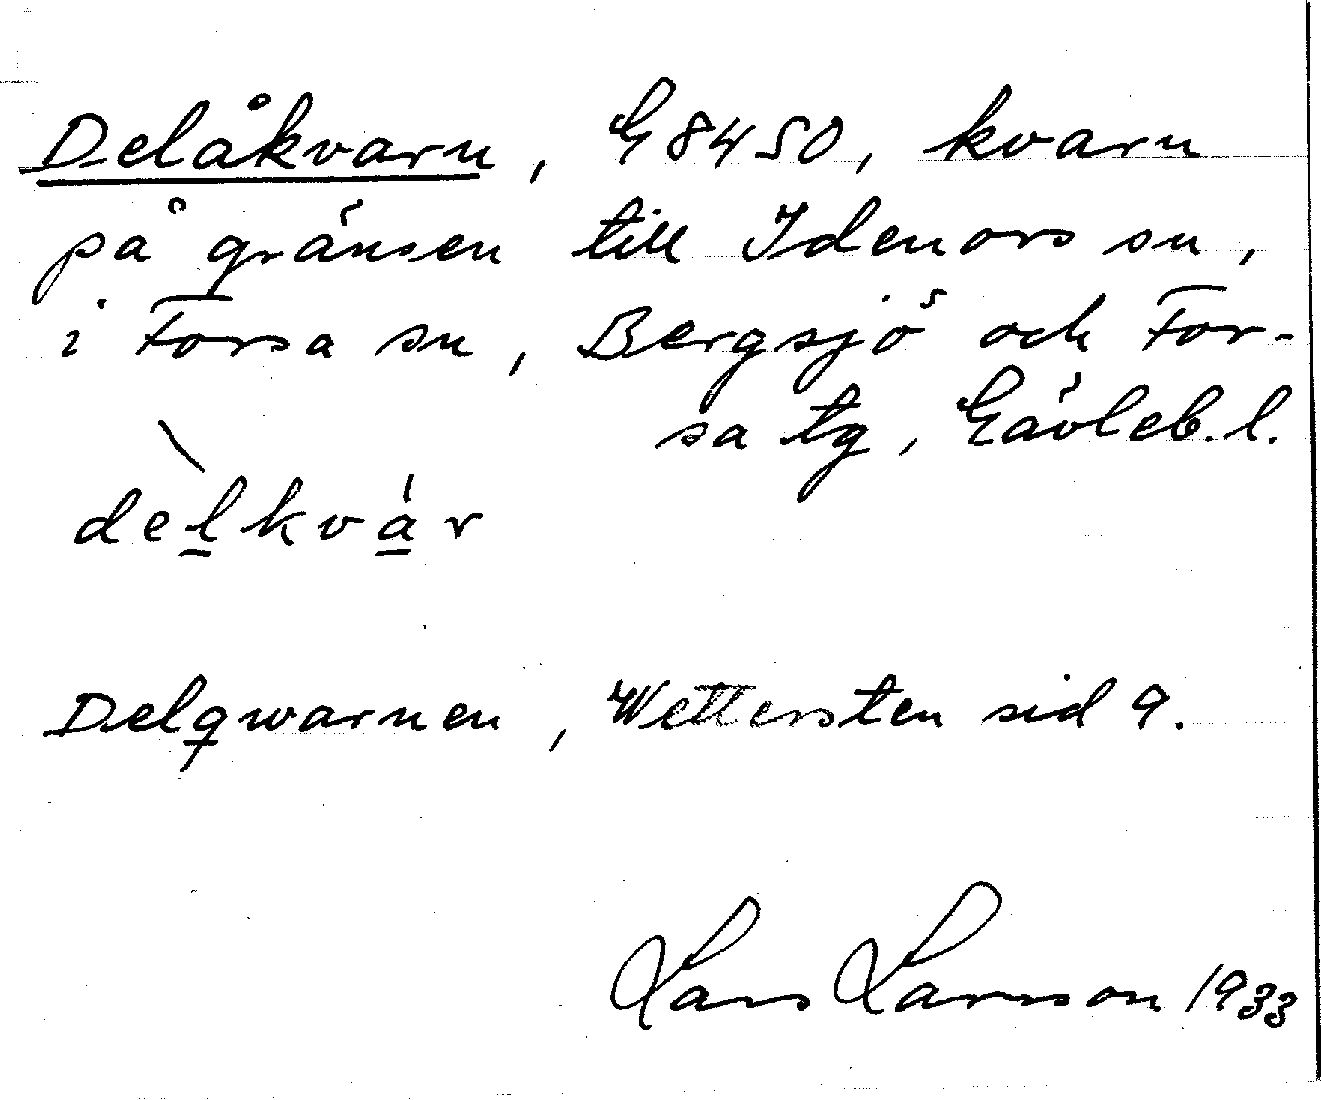 Delåkvarn, G8450, kvarn
på gränsen till Idenors sn,
i Forsa sn, Bergsjö och For-
sa tg, Gävleb. l.
de\̀lkvár
Delqwarnen, Wettersten sid 9.
Lars Larsson 1933